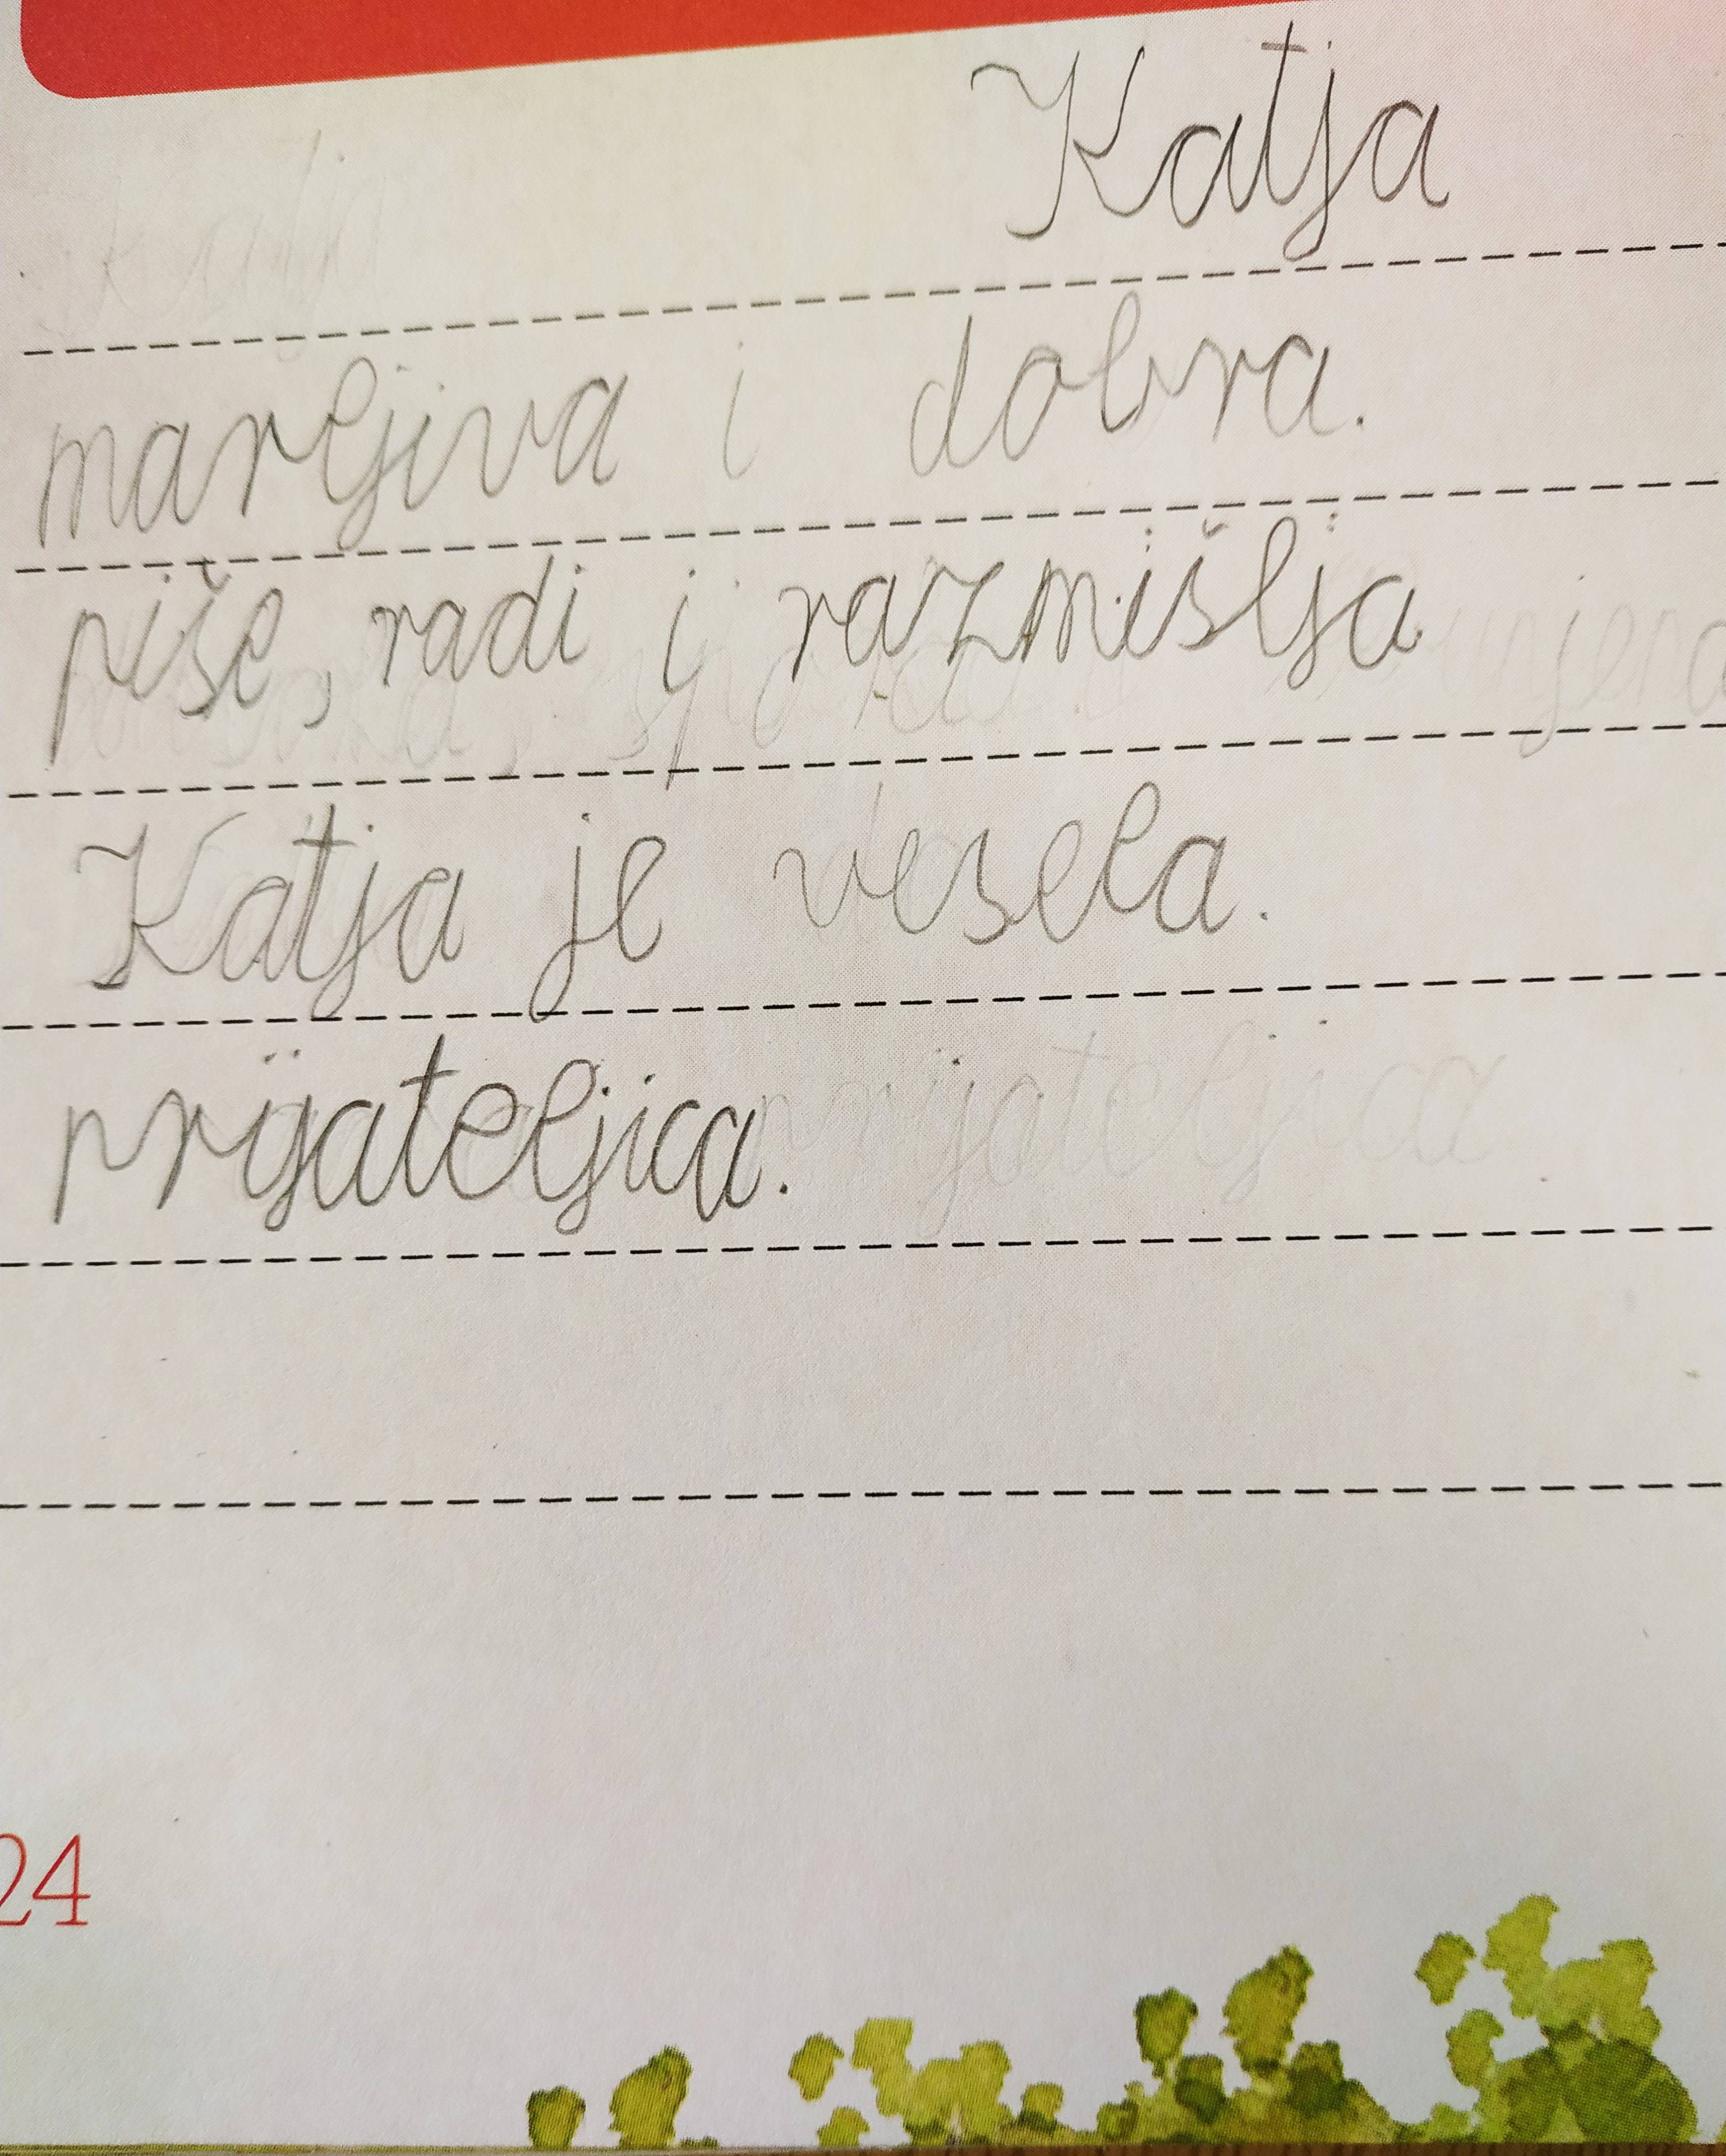 Katja
marljiva i dobra.
piše, radi i razmišlja
Katja je vesela.
prijateljica.
24